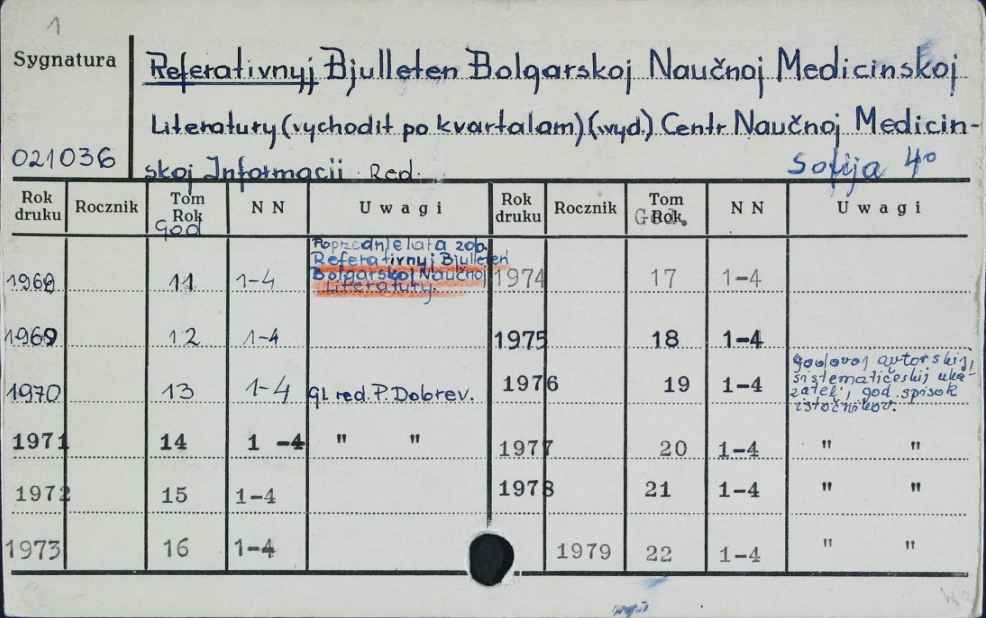 1
Sygnatura
Referativnyj Bjulleten Bolgarskoj Naučnoj Medicinskoj
Literatury (vychodit po kvartalam) (wyd.) Centr Naučnoj Medicin-
021036
skoj Informacii. Red. Sofija 4°
Rok druku Rocznik Tom Rok God N N Uwagi Rok druku Rocznik Tom Rok God. N N Uwagi
Poprzednie lata zob.
Referativnyj Bjulleten
Bolgarskoj Naučnoj
Literatury.
11 1-4 1974 17 1-4
1969 12 1-4 1975 18 1-4
Godovoj avtorskij,
sistematičeskij uka-
zateli, god. spisok
istočnikov.
1970 13 1-4 Gl. red. P. Dobrev. 1976 19 1-4
1971 14 1 -4 " " 1977 20 1-4 " "
1972 15 1-4 1978 21 1-4 " "
1973 16 1-4 1979 22 1-4 " "